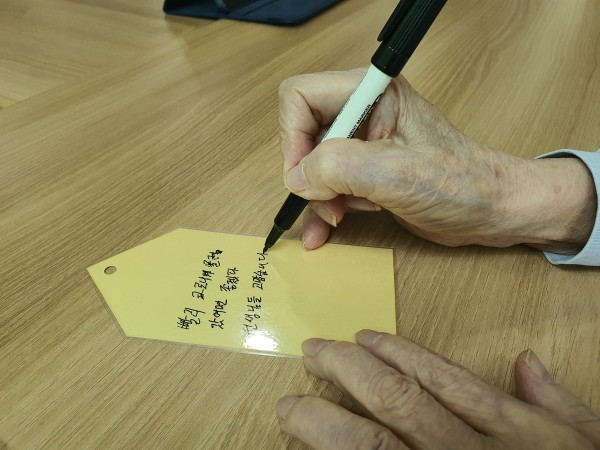 빨리 코로나19 물러
갔으면 좋겠다
선생님들 고맙습니다